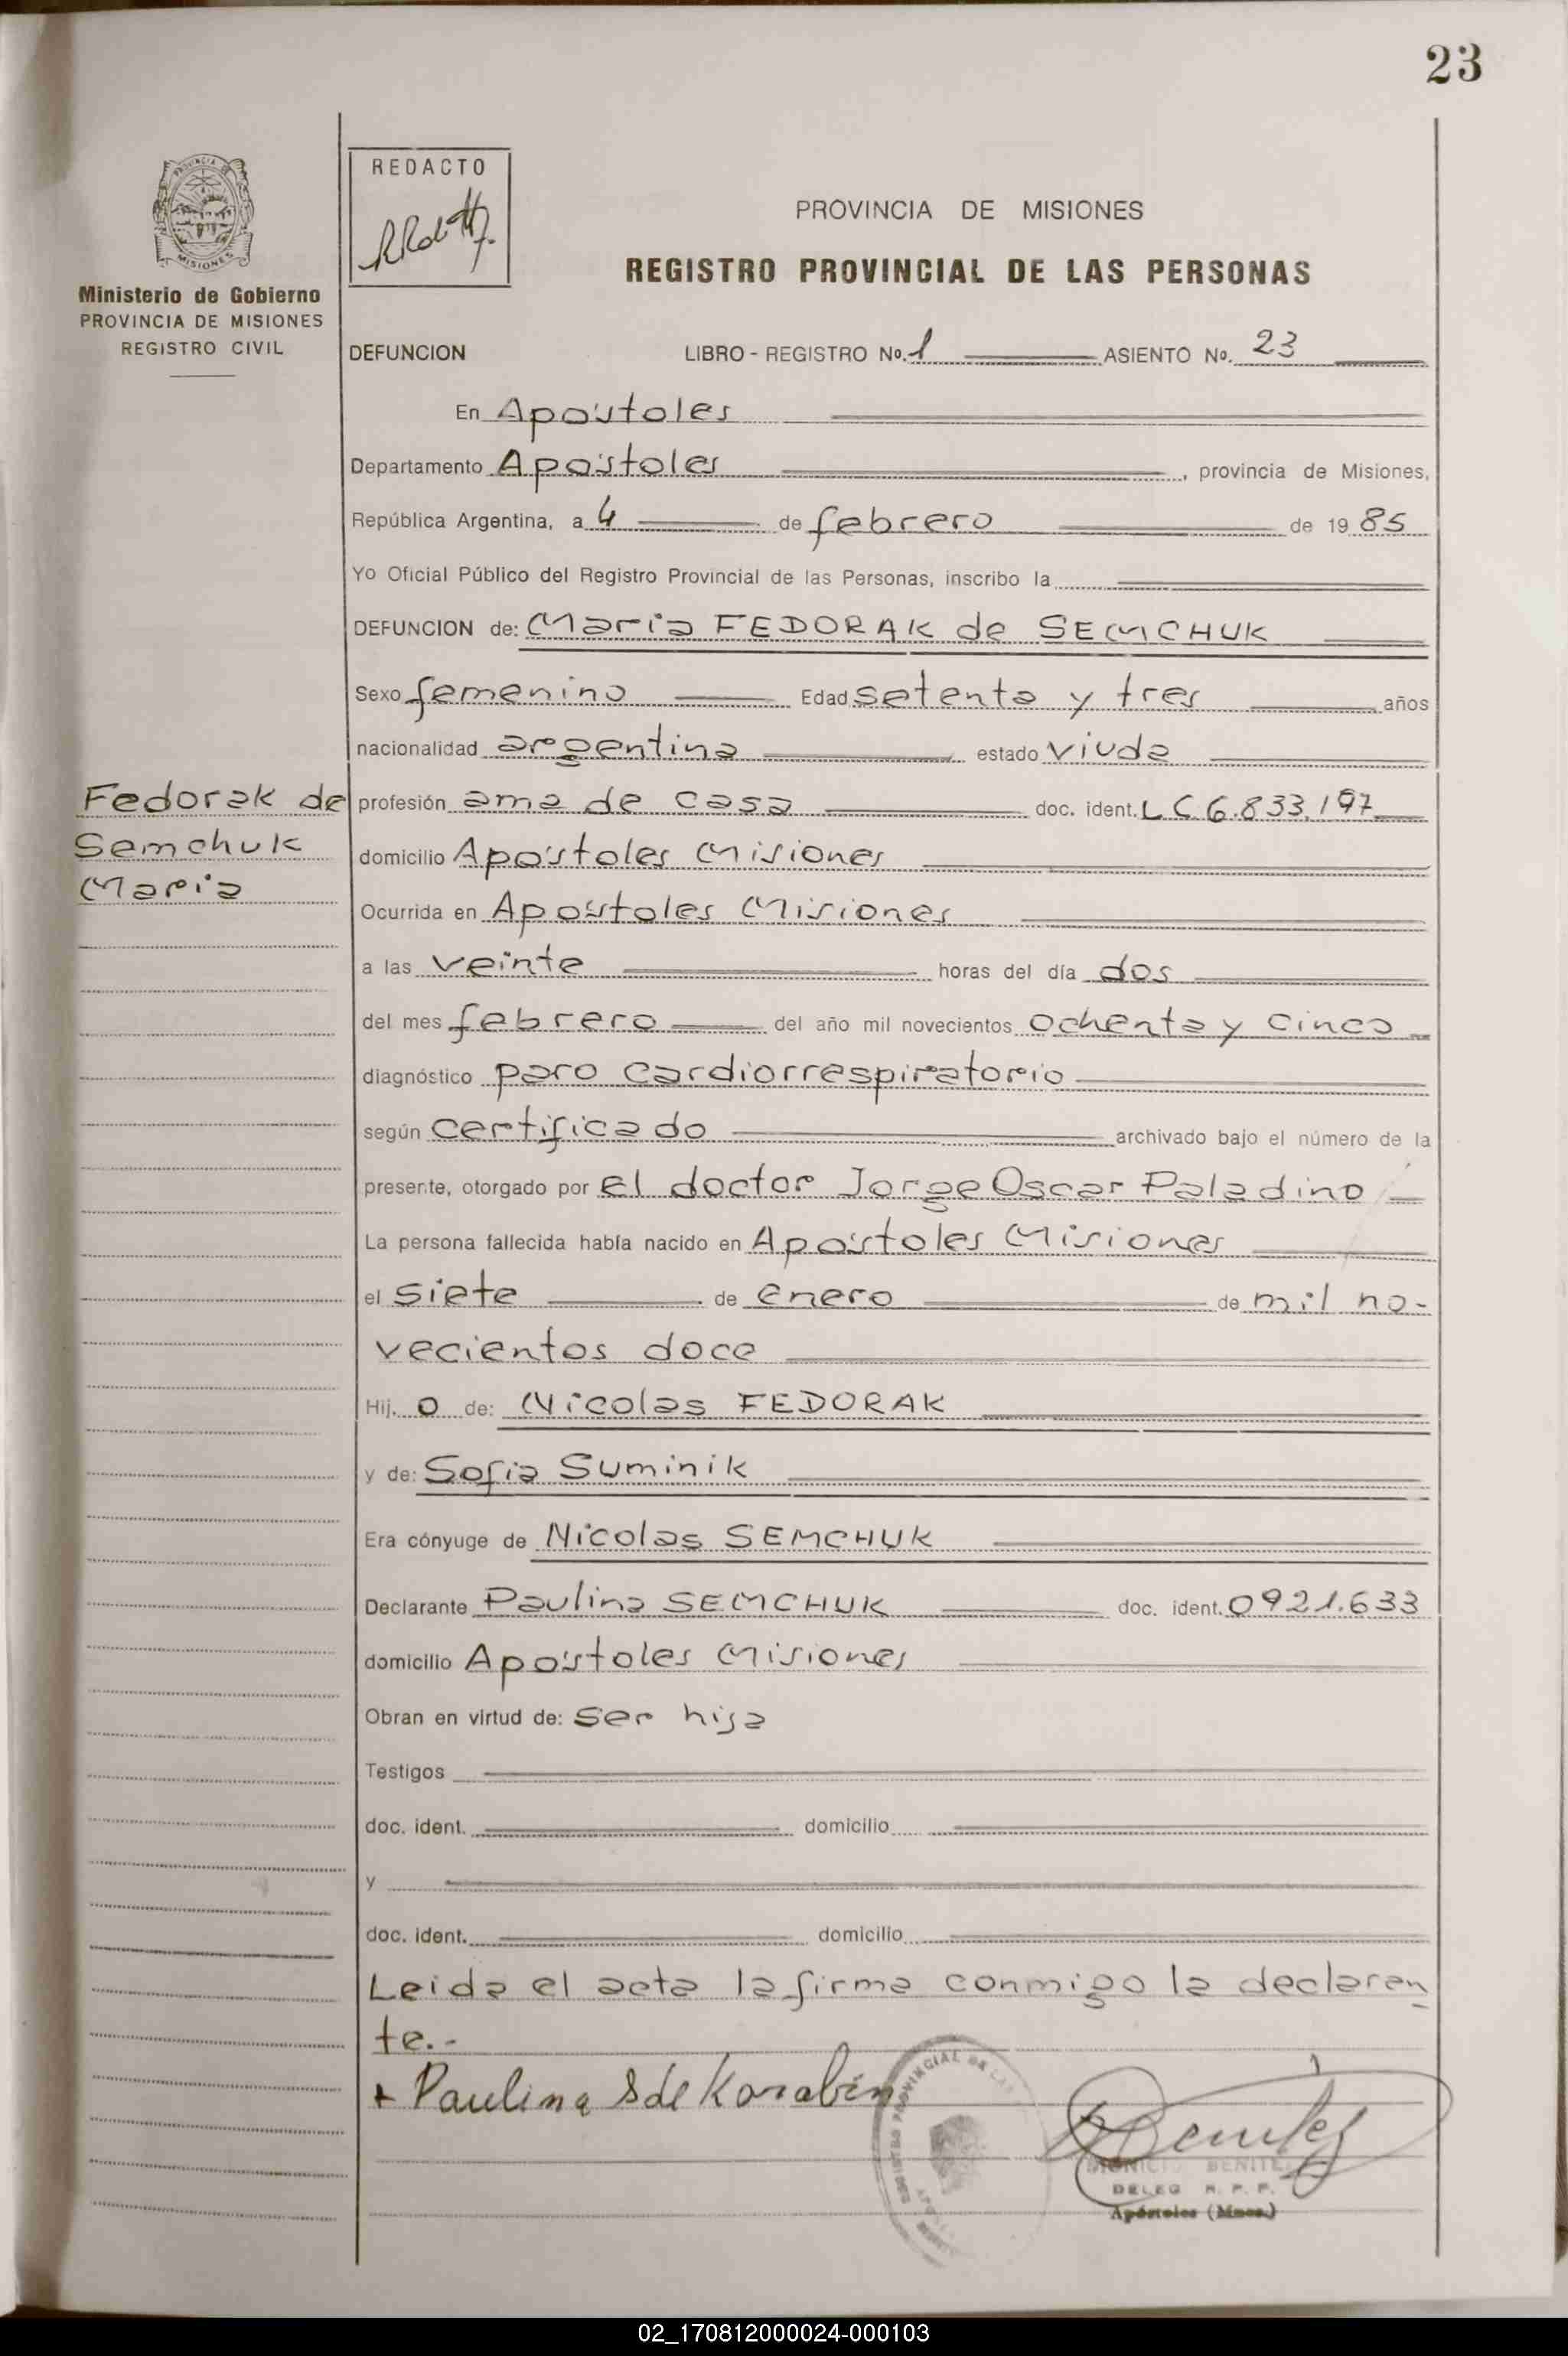 23
REDACTO
PROVINCIA DE MISIONES
REGISTRO PROVINCIAL DE LAS PERSONAS
MISIONES
Ministerio de Gobierno
PROVINCIA DE MISIONES
REGISTRO CIVIL
DEFUNCION LIBRO - REGISTRO No. 1 ASIENTO No. 23
En Apóstoles
Departamento Apóstoles, provincia de Misiones,
República Argentina, a 4 de febrero de 1985
Yo Oficial Público del Registro Provincial de las Personas, inscribo la
DEFUNCION de: Maria FEDORAK de SEMCHUK
Sexo femenino Edad setenta y tres años
nacionalidad argentina estado viuda
Fedorak de
Semchuk
Maria
profesión ama de casa doc. ident. L C 6.833.197
domicilio Apóstoles Misiones
Ocurrida en Apóstoles Misiones
a las veinte horas del día dos
del mes febrero del año mil novecientos ochenta y cinco
diagnóstico paro cardiorrespiratorio
según certificado archivado bajo el número de la
presente, otorgado por el doctor Jorge Oscar Paladino
La persona fallecida había nacido en Apóstoles Misiones
el siete de enero de mil no-
vecientos doce
Hij. o de: Nicolas FEDORAK
y de: Sofia Suminik
Era cónyuge de Nicolas SEMCHUK
Declarante Paulina SEMCHUK doc. ident. 0921.633
domicilio Apóstoles Misiones
Obran en virtud de: ser hija
Testigos
doc. ident. domicilio
y
doc. ident. domicilio
Leida el acta la firma conmigo la declaran
te.-
+ Paulina S de Korabin
Benitez
BENITEZ
DELEG R. P. P.
Apóstoles (Mnes.)
02_170812000024-000103